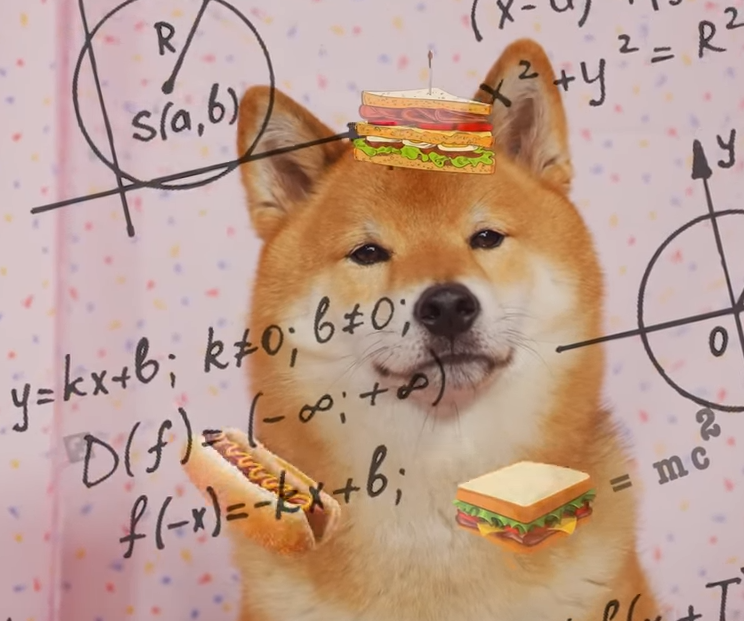 R
S(a,b)
x² + y² = R²
y
0
y=kx+b; k≠0; b≠0;
D(f) = (-∞; +∞)
f(-x)=-kx+b;
= mc²